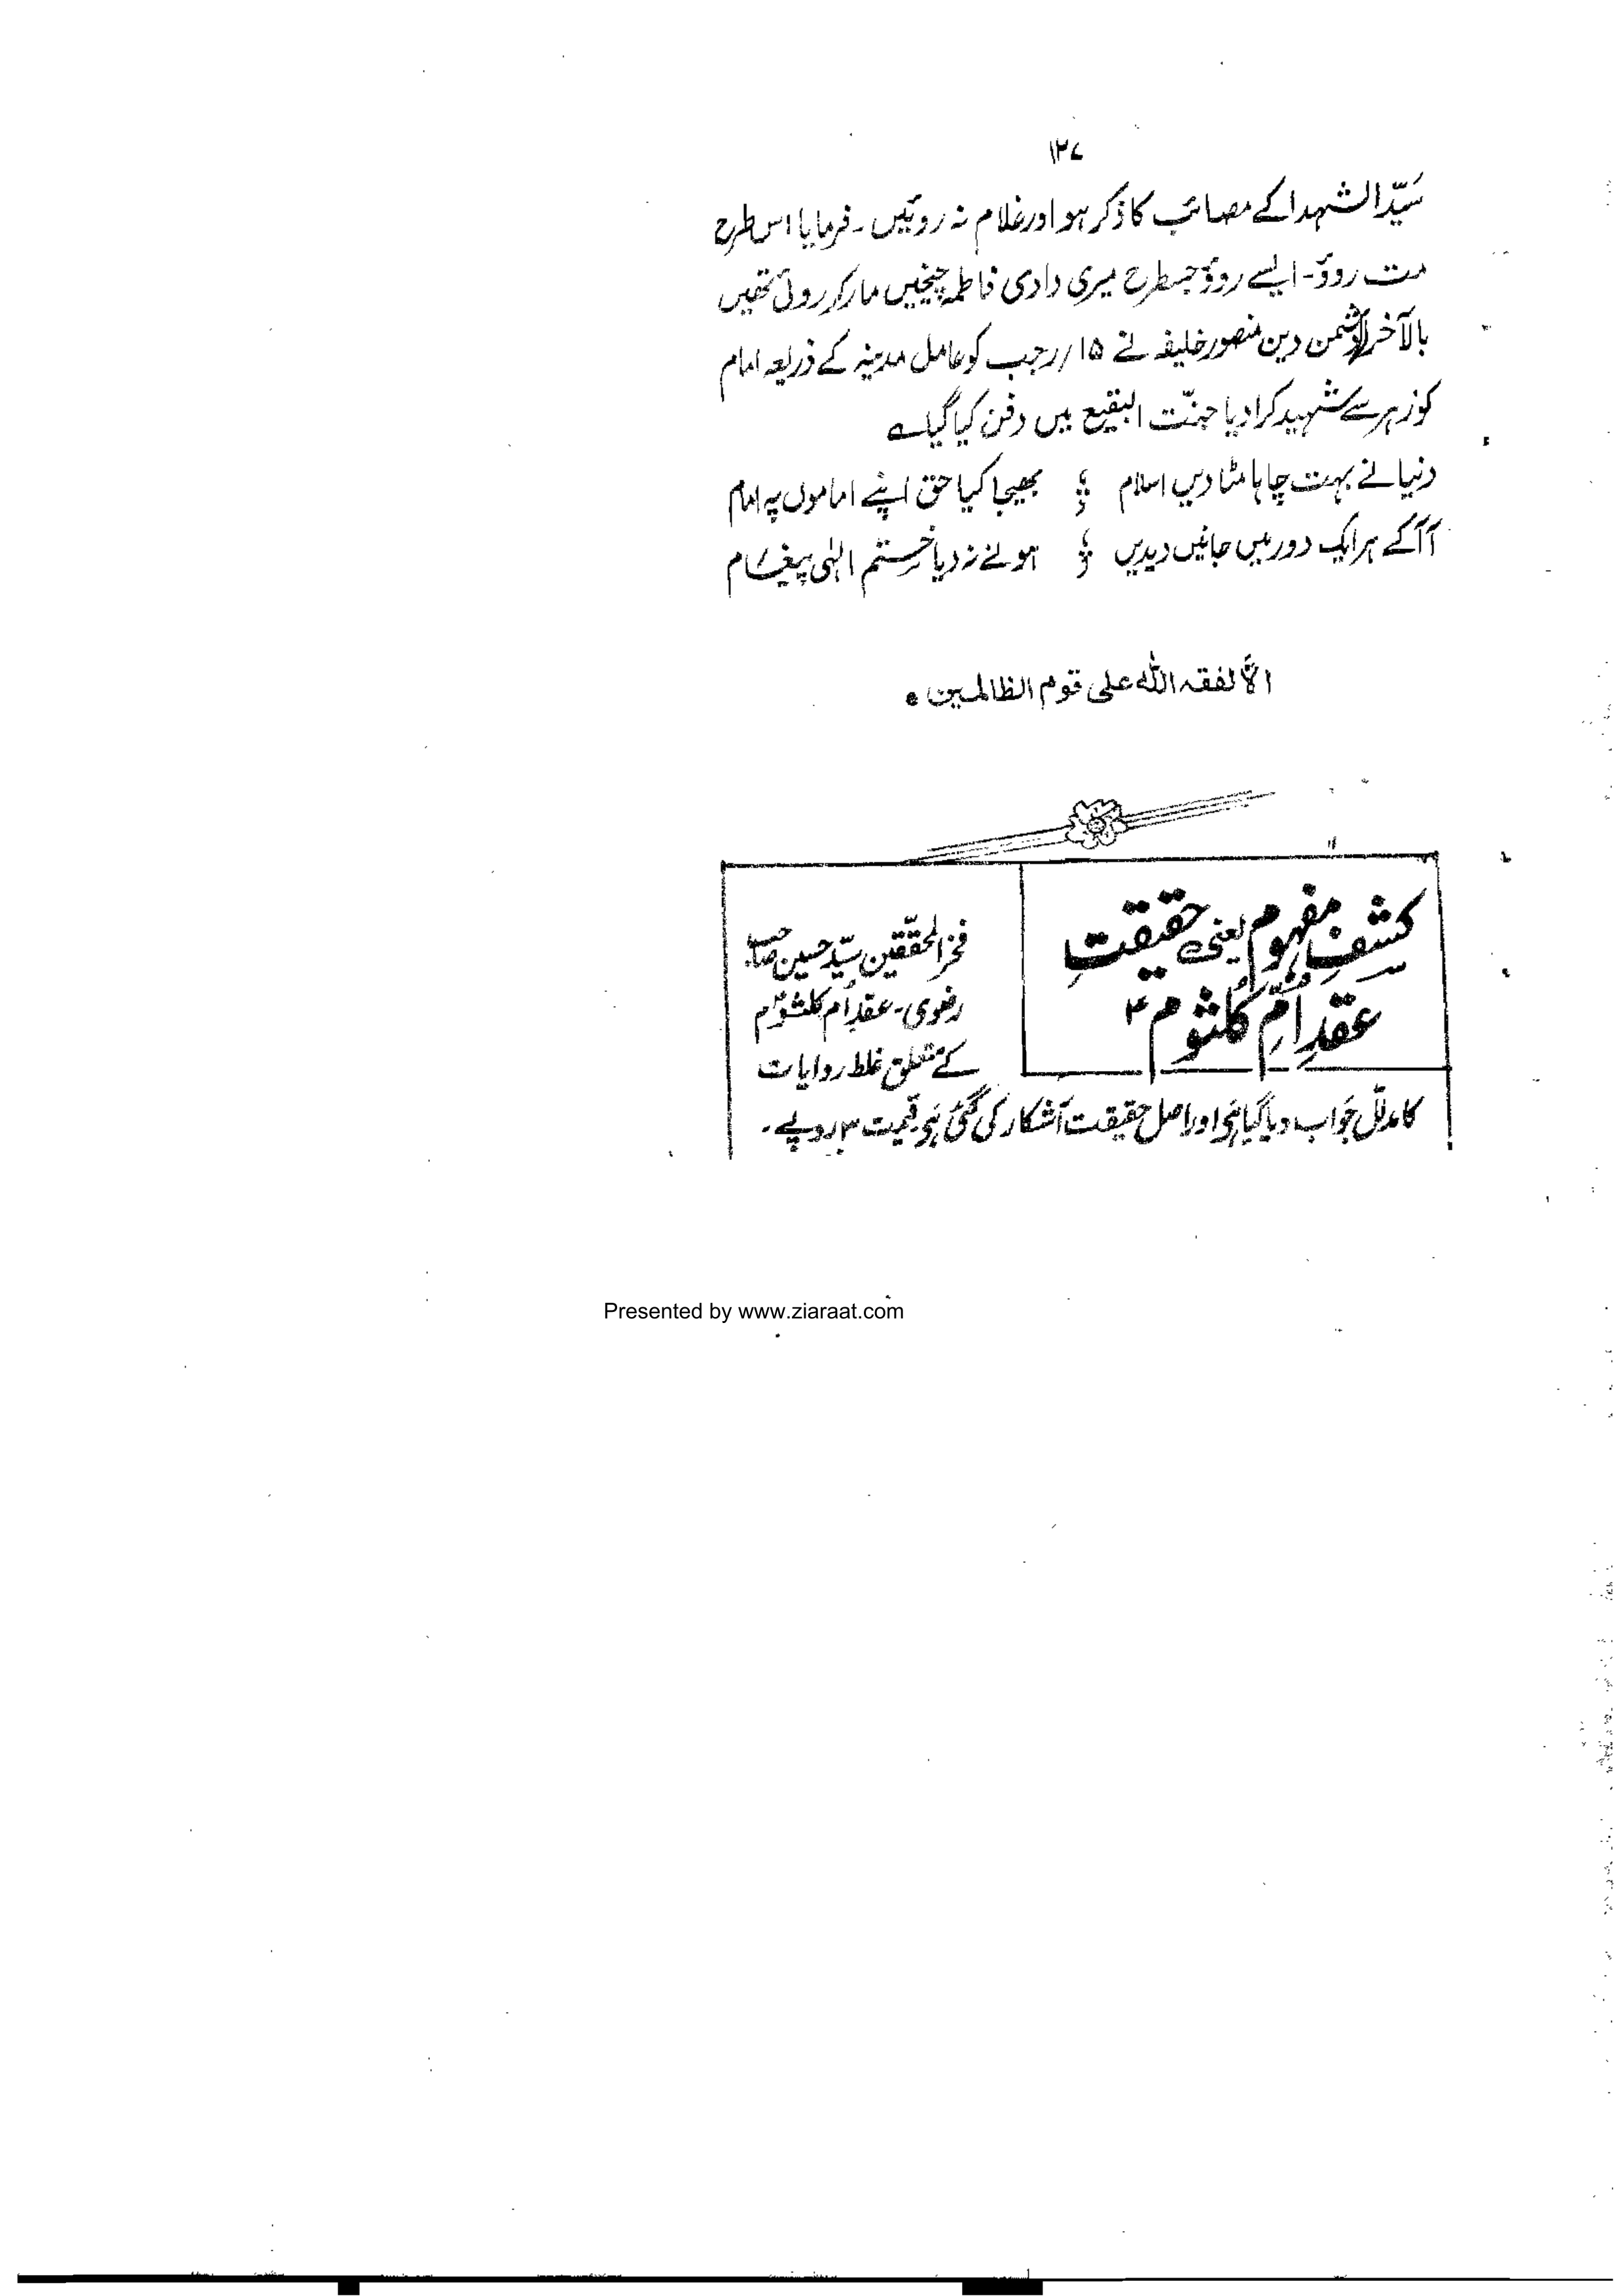 ۱۲۷
سَیّدُ الشہدا کے مصائب کا ذکر ہو اور غلام نہ روئیں ۔ فرمایا اس طرح
مت روؤ ۔ ایسے روؤ جسطرح میری دادی فاطمہ چیخیں مار کر روئی تھیں
بالآخر دشمن دین منصور خلیفہ نے ۱۵/رجب کو عامل مدینہ کے ذریعہ امام
کو زہر سے شہید کرا دیا جنّت البقیع میں دفن کیا گیا ے
دنیا نے بہت چاہا مٹا دیں اسلام ؛ بھیجا کیا حق اپنے اماموں پہ امام
آ آ کے ہر ایک دور میں جانیں دیدیں ؛ ہونے نہ دیا ختم الہٰی پیغام
الا لفقہ اللہ علی قوم الظالمین ہ
کشفِ مفہوم یعنی حقیقتِ
عقدِ اُمِّ کلثوم ۴
فخر المحققین سیّد حسین صاحب
رضوی ۔ عقدِ اُم کلثومؑ
کے متعلق غلط روایات
کا مدلّل جواب دیا گیا ہَے اور اصل حقیقت آشکار کی گئی ہَے قیمت ۳ روپے ۔
Presented by www.ziaraat.com